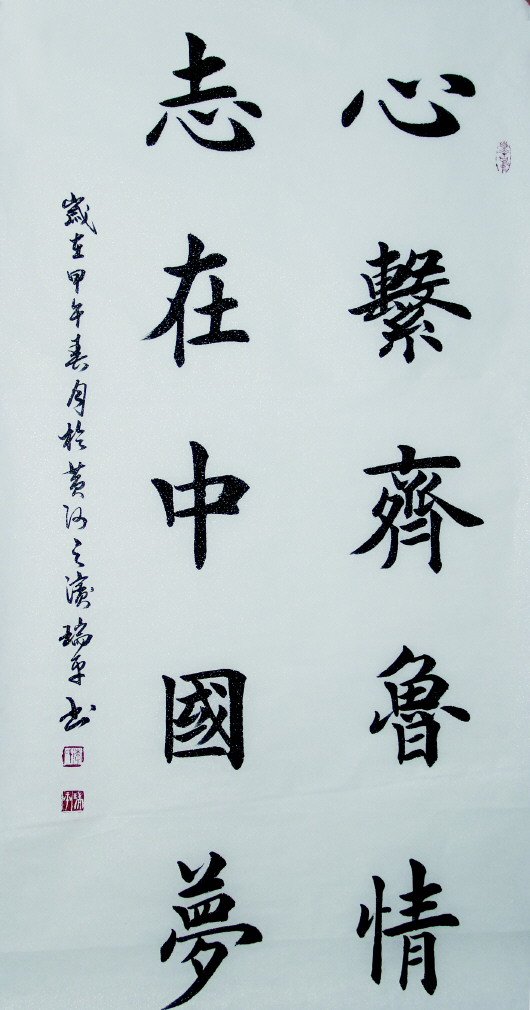 心繫齊魯情
志在中國夢
歲在甲午春月於黄河之濱瑞平书